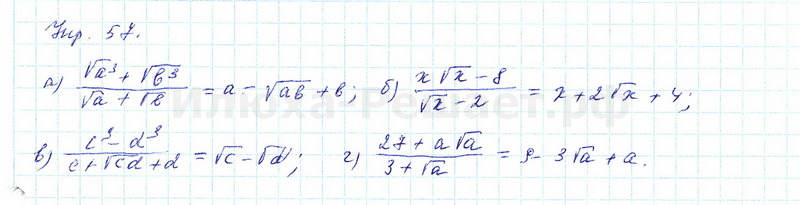 Упр. 57.
а) (√a³ + √b³)/(√a + √b) = a - √ab + b; б) (x√x - 8)/(√x - 2) = x + 2√x + 4;
в) (c³ - d³)/(c + √cd + d) = √c - √d; г) (27 + a√a)/(3 + √a) = 9 - 3√a + a.
Илюха-Решает.рф